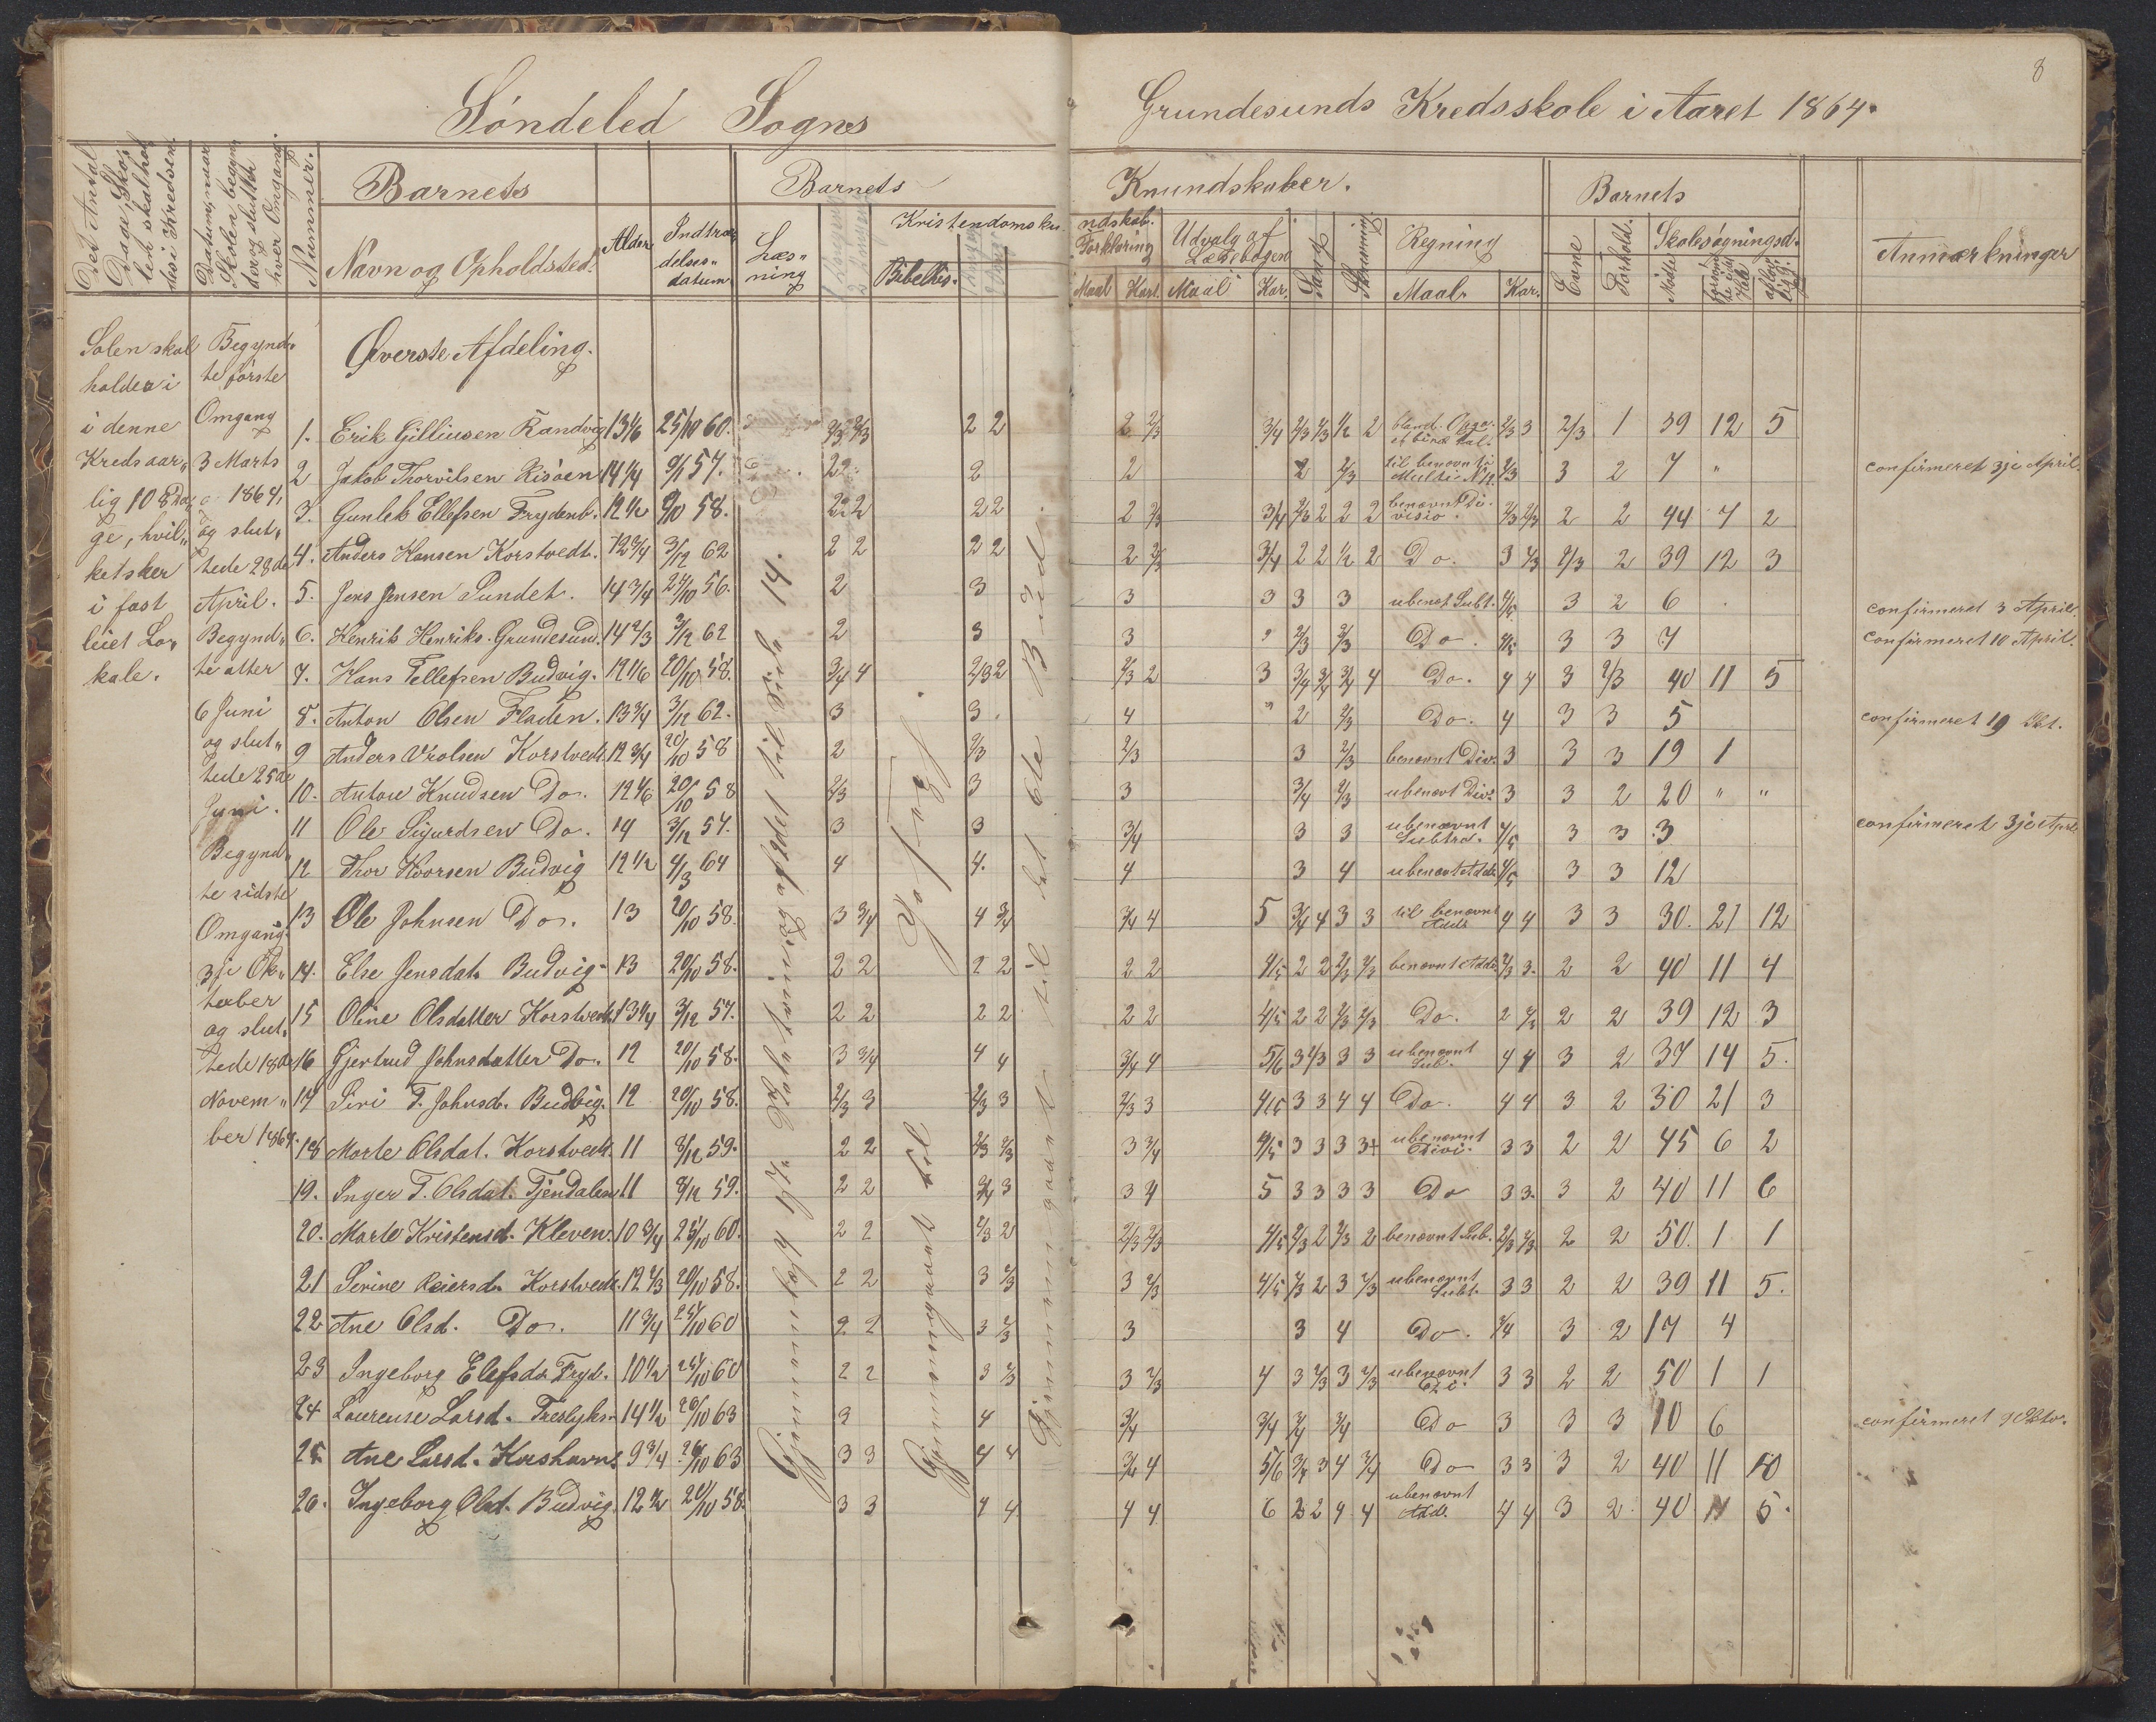 8
Søndeled Sogns
Grundesunds Kredsskole i Aaret 1864.
Det Antal
Dage, Sko,,
len skal hol
des i Kredsen.
Datum, naar
Skolen begyn
der og slutter
hver Omgang.
Nummer.
Barnets
Navn og Opholdsted.
Alder
Indtræ,,
delses,,
datum
Barnets
Læs,,
ning
Kristendomsku
Bibelhis.
Knundskaber.
ndskab.
Forklaring
Maal Kar.
Udvalg af
Læsebogen
Maal Kar.
Sang
Skrivning
Regning
Maal. Kar.
Barnets
Evne
Forhold.
Skolesøgningsd.
Mødte
Anmærkninger
Solen skal
holdes i
i denne
Kreds aar,,
lig 108 Da,,
ge, hvil,,
ket sker
i fast
leiet Lo,,
kale.
Begynd,,
te første
Omgang
3 Marts
1864,
og slut,,
tede 28de
April.
Begynd,,
te atter
6 Juni
og slut,,
tede 25de
Juni.
Begynd,,
te sidste
Omgang
3je Ok,,
tober
og slut,,
tede 18de
Novem,,
ber 1864.
Øverste Afdeling.
1. Erik Gilliusen Randvig 13 1/6 25/10 60. 2/3 2/3 2 2 2 2/3 3/4 2/3 2/3 1/2 2 2/3 3 2/3 1 39 12 5
2 Jakob Thorvilsen Risøen 14 1/4 57. 2 2 2 2 2/3 til benævnt Multi 2/3 3 2 7 " confirmeret 3je April.
3. Gunleb Ellefsen Frydenb. 12 1/2 58. 2 2 2 2 2 2/3 3/4 2/3 2 2 2 benævnt Di- visio. 2/3 2/3 2 2 44 7 2
4. Anders Hansen Korstvedt. 12 3/4 3/12 62 2 2 2 2 2 2/3 3/4 2 2 1/2 2 Do. 3 2/3 2/3 2 39 12 3
5. Jens Jensen Sundet. 14 3/4 56. 2 3 3 3 3 3 ubenæt Subt. 4/5 3 2 6 confirmeret 3 April.
6. Henrik Henriks. Grundesund. 14 2/3 3/12 62 2 3 3 " 2/3 2/3 Do. 4/5 3 3 7 Confirmeret 10 April.
7. Hans Tellefsen Budvig. 12 1/6 20/10 58. 3/4 4 2/3 2 2/3 2 3 3/4 3/4 3/4 4 Do. 4 4 3 2/3 40 11 5
8. Anton Olsen Fladen. 13 3/4 3/12 62. 3 3. 4 " 2 2/3 Do. 4 3 3 5 confirmeret 19 Okt.
9 Anders Vrolsen Korstvedt. 12 3/4 20/10 58 2 2/3 2/3 3 2/3 benævnt Div. 3 3 3 19 1
10. Anton Knudsen Do. 12 1/6 20/10 58 2/3 3 3 3/4 2/3 ubenævt Div. 3 3 2 20 " "
11 Ole Sigurdsen Do. 14 3/12 57. 3 3 3/4 3 3 ubenævnt Subtra. 4/5 3 3 3 confirmeret 3je April
12 Thor Hvorsen Budvig 12 1/2 4/3 64 4 4. 4 3 4 ubenævt Add. 4/5 3 3 12
13 Ole Johnsen Do. 13 20/10 58. 3 3/4 4 3/4 3/4 4 5 3/4 4 3 3 til benævnt Add. 4 4 3 3 30. 21 12
14. Else Jensdat. Budvig. 13 20/10 58. 2 2 2 2 2 2 4/5 2 2 2/3 2/3 benævnt Add. 2/3 3. 2 2 40 11 4
15 Oline Olsdatter Korstvedt 13 1/4 3/12 57. 2 2 2 2 2 2 4/5 2 2 2/3 2/3 Do. 2 2/3 2 2 39 12 3
16 Gjertrud Johnsdatter Do. 12 20/10 58. 3 3/4 4 4 3/4 4 5/6 3 2/3 3 3 ubenævnt Sub. 4 4 3 2 37 14 5.
17 Siri T. Johnsd. Budvig. 12 20/10 58. 2/3 3 2/3 3 2/3 3 4/5 3 3 4 4 Do. 4 4 3 2 30 21 3
18 Marte Olsdat. Korstvedt. 11 3/12 59. 2 2 2/3 2/3 3 3/4 4/5 3 3 3 3+ ubenævnt Divi. 3 3 2 2 45 6 2
19. Inger T. Olsdat. Tjendalen 11 3/12 59. 2 2 3/4 3 3 4 5 3 3 3 3 Do 3 3. 3 2 40 11 6
20. Marte Kristensd. Kleven. 10 3/4 25/10 60. 2 2 2/3 2 2/3 2/3 4/5 2/3 2 2/3 2 benævnt Sub. 2/3 2/3 2 2 50. 1 1
21 Sirine Reiersd. Korstvedt. 12 2/3 20/10 58. 2 2 3 2/3 3 2/3 4/5 2/3 2 3 2/3 ubenævnt Subt. 3 3 2 2 39 11 5.
22 Ane Olsd. Do. 11 3/4 25/10 60 2 2 3 2/3 3 3 4 Do. 3/4 3 2 17 4
23 Ingeborg Elefsdr. Fryd. 10 1/2 25/10 60 2 2 3 2/3 3 2/3 4 3 2/3 3 2/3 ubenævnt 3 3 2 2 50 1 1
24 Laurense Larsd. 14 1/2 26/10 63 3 4 3/4 3/4 3/4 3/4 Do 3 3 3 10 6 confirmeret 9 Okto.
25 Ane Larsd. Korshavn. 9 3/4 26/10 63 3 3 4 4 3/4 4 5/6 3/4 3 4 3/4 Do 3 3 3 2 40 11 10
26. Ingeborg Olsd. Budvig. 12 1/2 20/10 58. 3 3 4 4 4 4 6 3 2 4 4 ubenævnt Add. 4 4 3 2 40 11 5.
Gjennemlagt
til Side 14.
Gjennemgaaet til Josafat.
Gjennemgaaet til det 6te Bud.